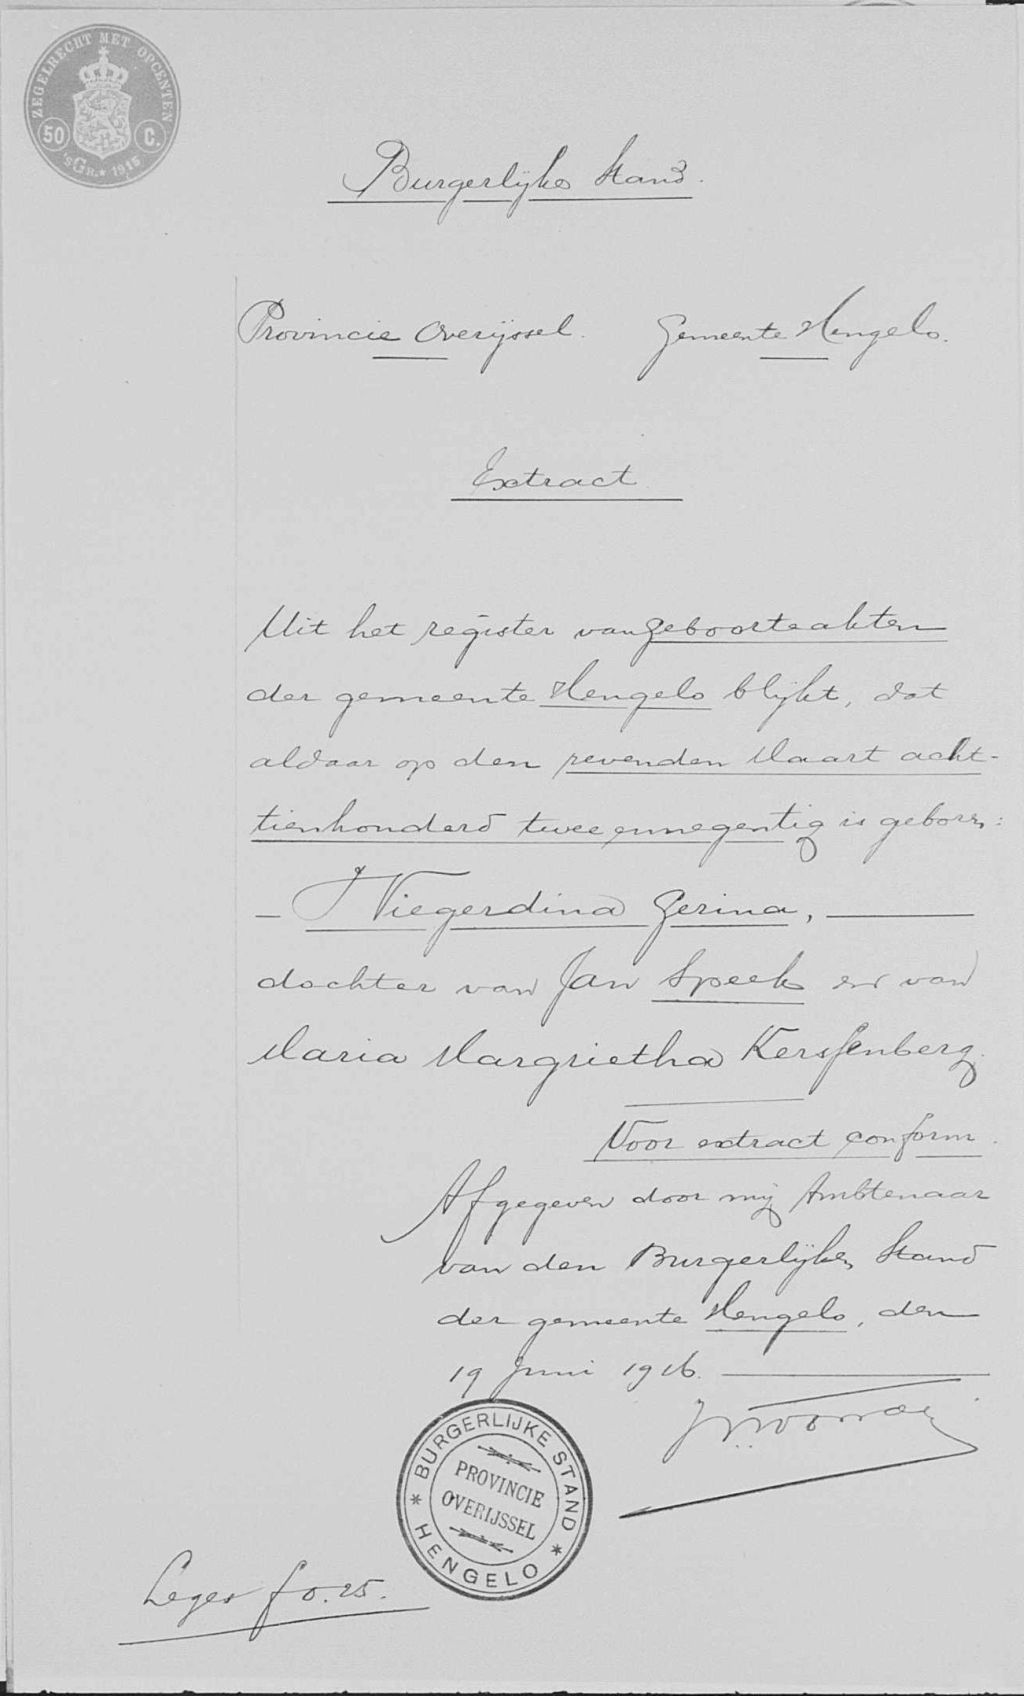 ZEGELRECHT MET OPCENTEN
50 C.
'sGR. * 1915
Burgerlijke Stand.
Provincie Overijssel. Gemeente Hengelo.
Extract.
Uit het register van geboorteakten
der gemeente Hengelo blijkt, dat
aldaar op den zevenden Maart acht-
tienhonderd tweeennegentig is geboren:
— Wiegerdina Gerina, —
dochter van Jan Speek en van
Maria Margrietha
Voor extract conform.
Afgegeven door mij Ambtenaar
van den Burgerlijken Stand
der gemeente Hengelo, den
19 Juni 1916. —
* BURGERLIJKE STAND * HENGELO
PROVINCIE
OVERIJSSEL
Leges f 0.25.